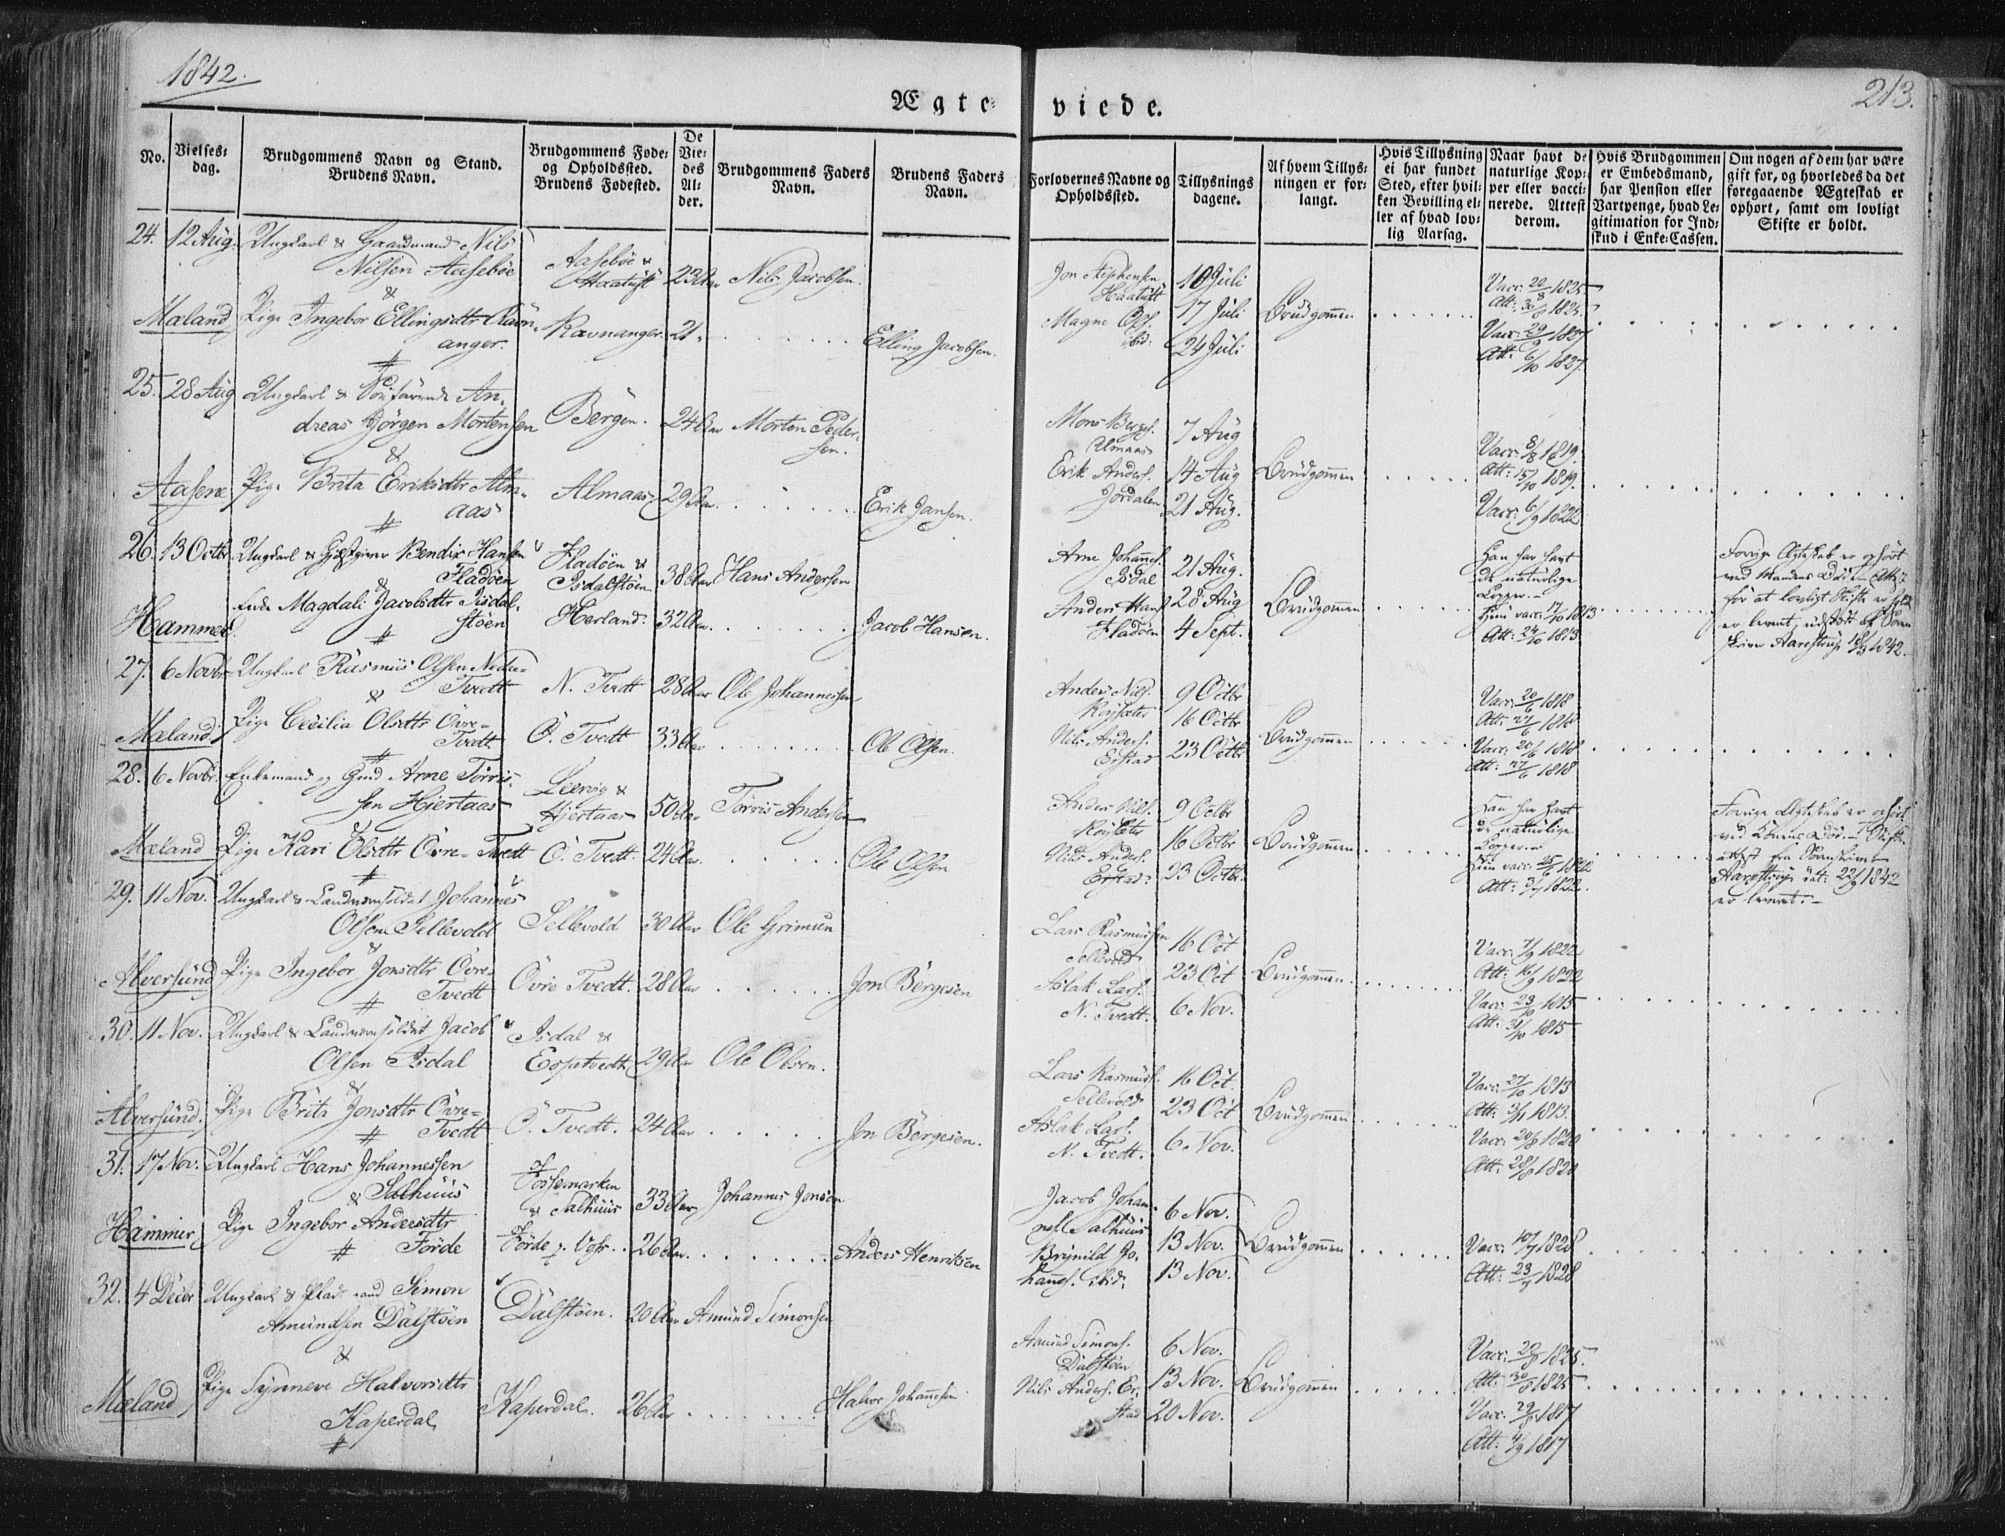 1842.
213.
Ægte viede.
No.
Vielses-
dag.
Brudgommens Navn og Stand.
Brudens Navn.
Brudgommens Føde-
og Opholdssted.
Brudens Fødested.
De
Vie-
des
Al-
der.
Brudgommens Faders
Navn.
Brudens Faders
Navn.
Forlovernes Navne og
Opholdssted.
Tillysnings
dagene.
Af hvem Tillys-
ningen er for-
langt.
Hvis Tillysning
ei har fundet
Sted, efter hvil-
ken Bevilling el-
ler af hvad lov-
lig Aarsag.
Naar havt de
naturlige Kop-
per eller vacci-
nerede. Attest
derom.
Hvis Brudgommen
er Embedsmand,
har Pension eller
Vartpenge, hvad Le-
gitimation for Ind-
skud i Enke-Cassen.
Om nogen af dem har være
gift før, og hvorledes da det
foregaaende Ægteskab er
ophørt, samt om lovligt
Skifte er holdt.
24. 12 Aug. Ungkarl & Gaardmand Nils
Nilsen Aasebøe
Aasebøe &
Haatuft 23 Aar Nils Jacobsen.
&
Mæland Pige Ingebor Ellingsdtr Ravn-
anger. Ravnanger. 21 Elling Jacobsen.
Jon Stephensen
Haatuft
Magne Ols.
ibid:
10 Juli
17 Juli
24 Juli
Brudgommen
Vacc: 20/8 1825
Att: 30/8 1825.
Vacc: 29/9 1827
Att: 6/10 1827
25. 28 Aug Ungkarl & An-
dreas Jörgen Mortensen
Bergen. 24 Aar Morten Peder-
sen.
&
Aasene Pige Brita Eriksdtr Alm-
aas Almaas 29 Aar Erik Jansen.
Mons Berges.
Almaas
Erik Anders.
Jordalen
7 Aug
14 Aug
21 Aug.
Brudgommen
Vacc: 8/8 1819.
Att: 15/10 1819.
Vacc: 6/9 1822
26. 13 Octbr. Ungkarl & Gjestgiver Bendix Hansen
Fladöen
Fladöen &
Isdalstöen 38 Aar Hans Andersen
&
Hammer. Enke Magdali Jacobsdtr Isdal-
stöen Herland. 32 Aar. Jacob Hansen.
Arne Johannes.
Isdal
Anders Hans.
Fladöen
21 Aug.
28 Aug
4 Sept.
Brudgommen
Han har havt
de naturlige
Kopper.
Hun vacc: 17/10 1813
Att: 24/10 1813
Forrige Ægteskab er ophört
ved Mandens Död. Attest
for at lovligt Skifte er holdt
er leveret, udstædt af Soren
skriver Aarestrup 18/8 1842.
27. 6 Novbr. Ungkarl Rasmus Olsen Nedre-
Tvedt N. Tvedt 28 Aar Ole Johannessen
&
Mæland. Pige Cecilia Olsdtr Övre-
Tvedt Ö. Tvedt 33 Aar Ole Olsen.
Anders Nils.
Röysæter
Nils Anders.
Erstad
9 Octbr
16 Octbr
23 Octbr
Brudgommen
Vacc: 20/6 1818
Att: 27/6 1818
Vacc: 20/6 1818
Att: 27/6 1818
28. 6 Novbr. Enkemand og Gmd Arne Torris-
sen Hjertaas
Leervig &
Hjertaas 50 Aar Torris Andersen
&
Mæland Pige Kari Olsdtr Övre-Tvedt Ö. Tvedt. 24 Aar. Ole Olsen
Anders Nils.
Röysæter
Nils Anders.
Erstad
9 Octbr
16 Octbr
23 Octbr.
Brudgommen
Han har havt
de naturlige
Kopper.
Hun vacc: 25/6 1822
Att: 3/7 1822.
Forrige Ægteskab er ophört
ved Konens Död. Skifte-
attest fra Sorenskriver
Aarestrup dat: 22/9 1842
er leveret.
29. 11 Nov. Ungkarl & Landværnsoldat Johannes
Olsen Sellevold Sellevold 30 Aar Ole Grimsen
&
Alversund Pige Ingebor Jonsdtr Övre-
Tvedt Övre Tvedt. 28 Aar Jon Börgesen
Lars Rasmussen
Sellevold
Aslak Lars.
N. Tvedt.
16 Oct
23 Oct
6 Nov.
Brudgommen
Vacc: 7/9 1822
Att: 16/9 1822
Vacc: 23/10 1815
Att: 31/10 1815
30. 11 Nov. Ungkarl & Landværnsoldat Jacob
Olsen Isdal
Isdal &
Espetvedt 29 Aar Ole Olsen.
&
Alversund. Pige Brita Jonsdtr Övre-
Tvedt Ö. Tvedt. 24 Aar Jon Börgesen.
Lars Rasmus.
Sellevold
Aslak Lars.
N. Tvedt.
16 Oct.
23 Oct
6 Nov.
Brudgommen
Vacc: 27/10 1813
Att: 3/11 1813.
Vacc: 20/8 1820
Att: 28/8 1820
31. 17 Nov. Ungkarl Hans Johannessen
Salhuus
Fossemarken
& Salhuus 33 Aar Johannes Jonsen
&
Hammer Pige Ingebor Andersdtr
Förde Förde p. Voss. 26 Aar Anders Henriksen
Jacob Johan-
nes. Salhuus
Brynild Jo-
hanns. ibid:
6 Nov.
13 Nov.
13 Nov.
Brudgommen
Vacc: 10/7 1828
Att: 23/7 1828
32. 4 Decbr Ungkarl & Simon
Amundsen Dalstöen Dalstöen. 20 Aar Amund Simonsen
&
Mæland Pige Synneve Halvorsdtr
Kaperdal Kaperdal. 26 Aar Halvor Johannesen
Amund Simons.
Dalstöen
Nils Anders. Er-
stad
6 Nov.
13 Nov.
20 Nov.
Brudgommen
Vacc: 20/8 1825.
Att: 30/8 1825
Vacc: 29/8 1817
Att: 4/9 1817